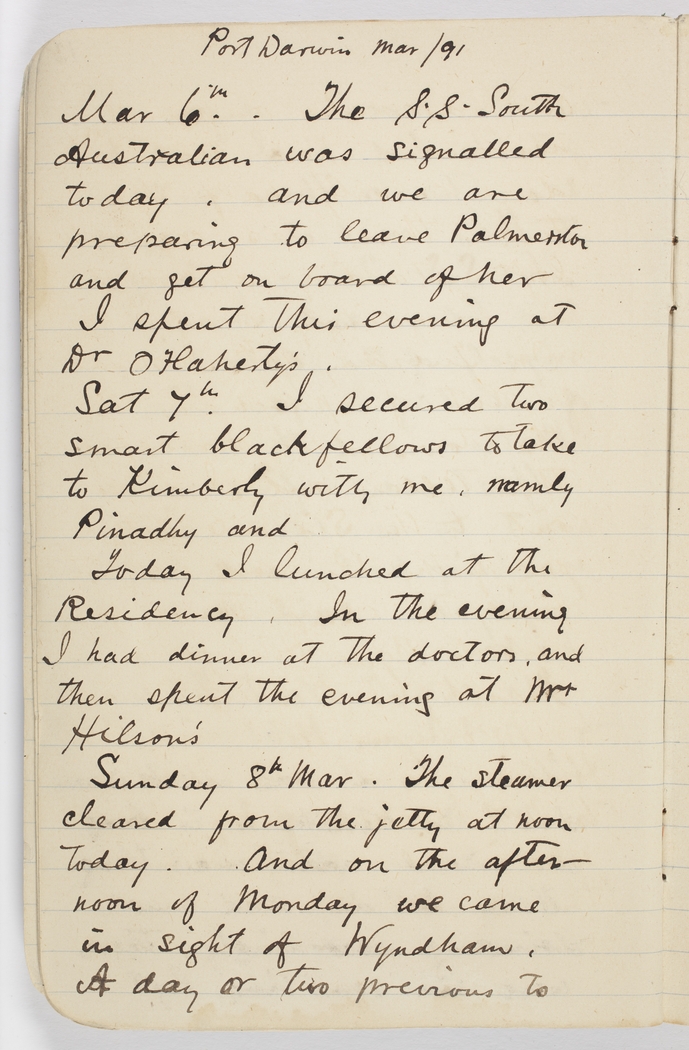 Port Darwin Mar /91
Mar 6th. . The S.S. South
Australian was signalled
today . and we are
preparing to leave Palmerston
and get on board of her
I spent this evening at
Dr O'Flaherty's .
Sat 7th. I secured two
smart blackfellows to take
to Kimberly with me . namly
Pinadhy and
Today I lunched at the
Residency . In the evening
I had dinner at the doctors, and
then spent the evening at
Hilson's
Sunday 8th Mar . The steamer
cleared from the jetty at noon
today . And on the after-
noon of Monday we came
in sight of Wyndham .
A day or two previous to